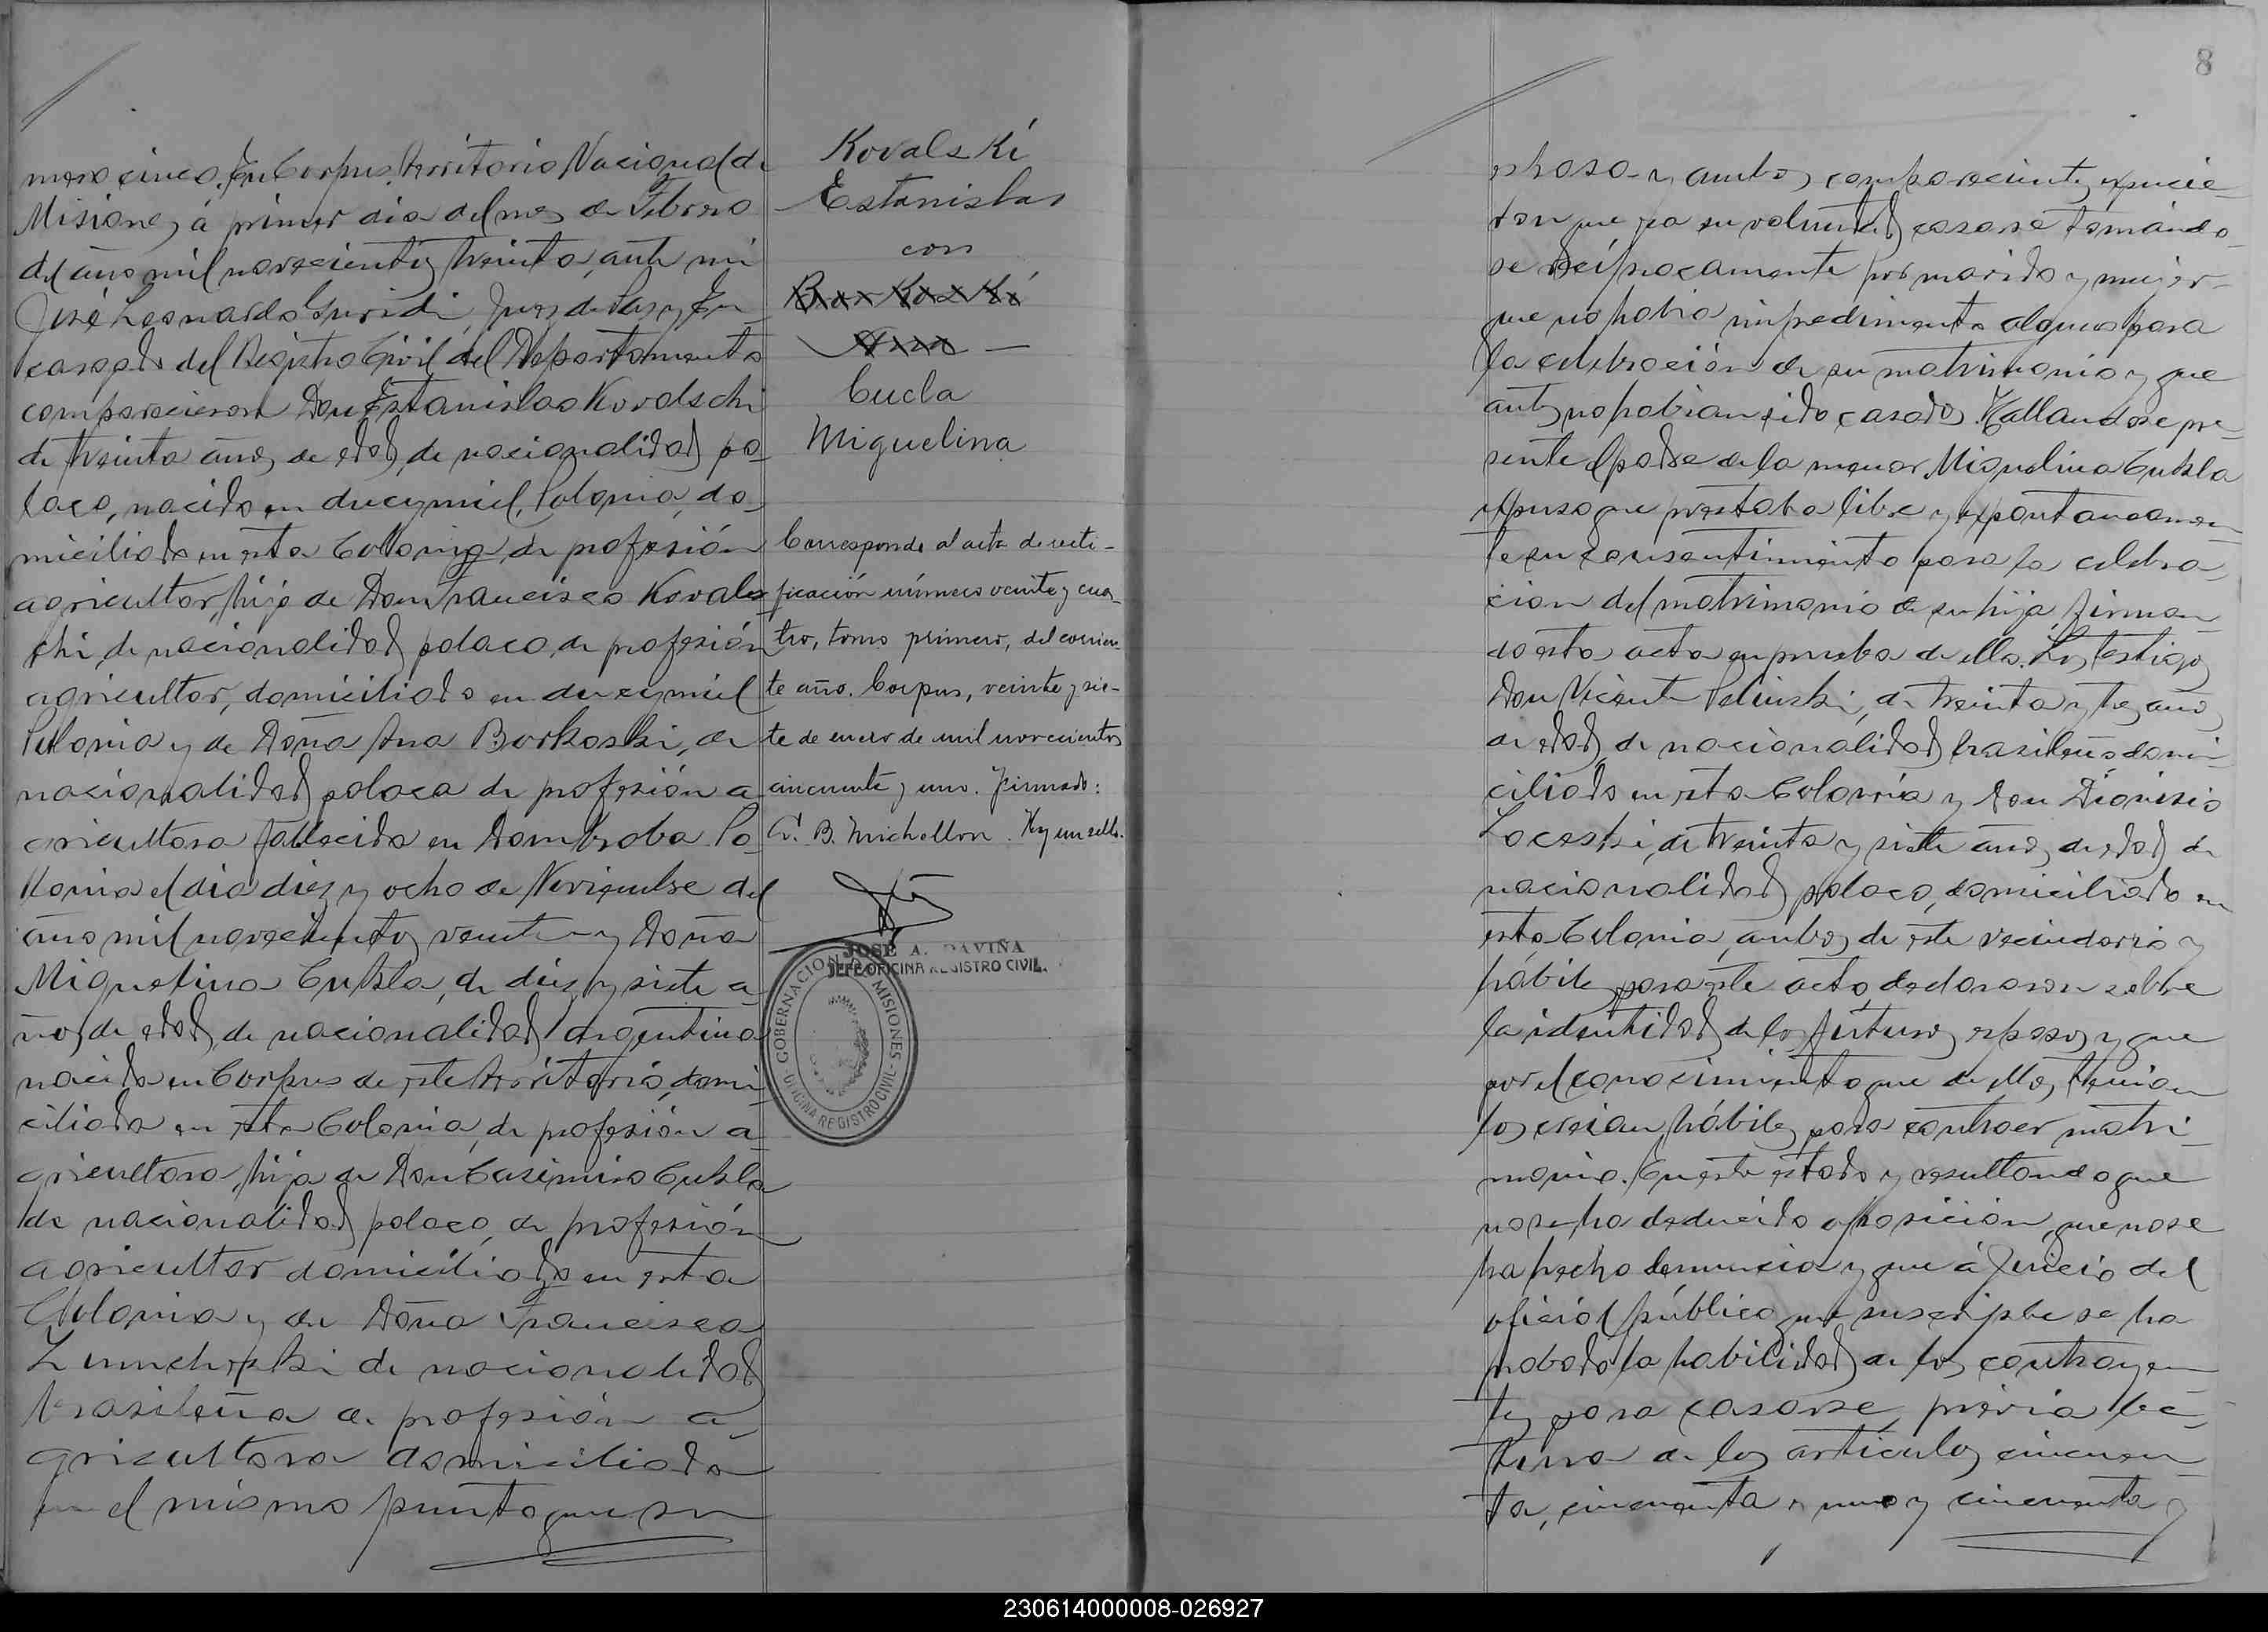 mero cinco. En Corpus, Territorio Nacional de
Misiones, á primer dia del mes de Febrero
del año mil novecientos treinta, ante mi
José Leonardo Guridi, Juez de Paz y En
cargado del Registro Civil del Departamento
comparecieron Don Estanislao Kovalschi
de treinta años de edad, de nacionalidad po
laco, nacido en Polonia, do-
miciliado en esta Colonia, de profesión
agricultor, hijo de Don Francisco Kovals
chi, de nacionalidad polaco, de profesión
agricultor, domiciliado en
Polonia y de Doña Ana Borkoski, de
nacionalidad polaca de profesión a
gricultora fallecida en Dombroba Po
lonia el dia diez y ocho de Noviembre del
año mil novecientos veinte y Doña
Miguelina Cukla, de diez y siete a
ños de edad, de nacionalidad argentina
nacida en Corpus de este Territorio, domi
ciliada en esta Colonia, de profesión a
gricultora, hija de Don Casimiro Cukla
de nacionalidad polaco, de profesión
agricultor domiciliado en esta
Colonia y de Doña Francisca
de nacionalidad
brasileña de profesión a
gricultora domiciliada
en el mismo punto que su
Kovalski
Estanislao
con
Borkoski
Ana
Cucla
Miguelina
Corresponde al acta de recti-
ficación número veinte y cua-
tro, tomo primero, del corrien-
te año. Corpus, veinte y sie-
te de enero de mil novecientos
cincuenta y uno. Firmado:
G. B. Michellon. Hay un sello.
JOSE A. DAVIÑA
JEFE OFICINA REGISTRO CIVIL.
GOBERNACION DE MISIONES - OFICINA REGISTRO CIVIL -
8
esposo - y ambos comparecientes expusie
ron que era su voluntad casarse tomándo-
se recíprocamente por marido y mujer-
que no habia impedimento alguno para
la celebración de su matrimonio y que
antes no habian sido casados. Hallandose pre-
sente el padre de la menor Miguelina Cukla
expuso que prestaba libre y expontaneamen-
te su consentimiento para la celebra
cion del matrimonio de su hija, firman-
do esta acta en prueba de ello. Los testigos
Don Vicente Pelinski, de treinta y tres años
de edad, de nacionalidad brasileño domi-
ciliado en esta Colonia y Don Dionisio
Loceski, de treinta y siete años de edad de
nacionalidad polaco, domiciliado en
esta Colonia, ambos de este vecindario y
hábiles para este acto, declararon sobre
la identidad de los futuros esposos y que
por el conocimiento que de ellos tenian
los creian hábiles para contraer matri-
monio. En este estado y resultando que
no se ha deducido oposición, que no se
ha hecho denuncia y que á juicio del
oficial público que suscripbe se ha
probado la habilidad de los contrayen-
tes para casarse, previa lec-
tura de los articulos cincuen-
ta, cincuenta y uno y cincuenta y
230614000008-026927